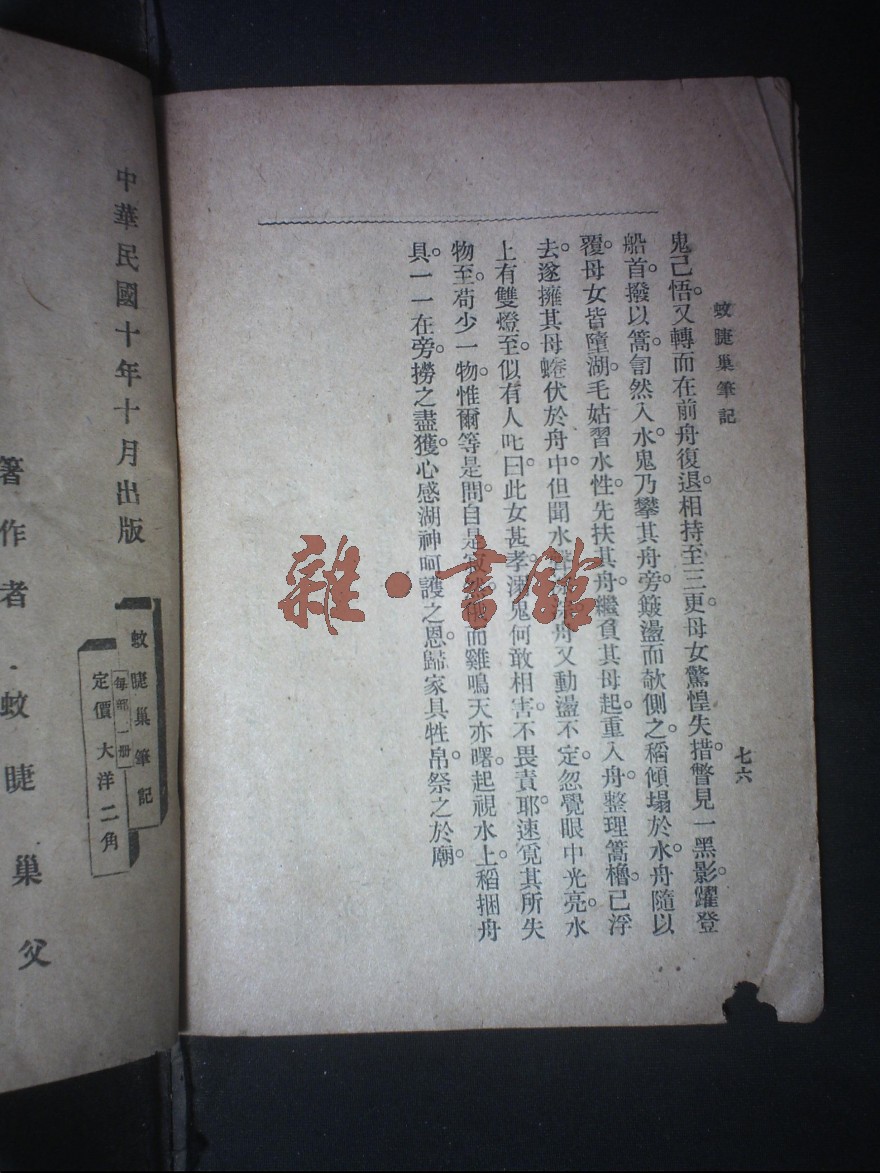 蚊睫巢筆記
七六
鬼己悟。又轉而在前舟復退。相持至三更。母女驚惶失措。瞥見一黑影。躍登
船首。撥以篙。訇然入水。鬼乃攀其舟旁。簸盪而欹側之。稻傾塌於水。舟隨以
覆。母女皆墮湖。毛姑習水性。先扶其舟。繼負其母起。重入舟。整理篙櫓。已浮
去。遂擁其母。蜷伏於舟中。但聞水聲 舟又動盪不定。忽覺眼中光亮。水
上有雙燈至。似有人叱曰。此女甚孝。溺鬼何敢相害。不畏責耶。速覓其所失
物至。苟少一物。惟爾等是問。自是寂 而雞鳴天亦曙。起視水上。稻捆舟
具。一一在旁。撈之盡獲。心感湖神呵護之恩。歸家具牲帛。祭之於廟。
雜·書館
中華民國十年十月出版
蚊睫巢筆記
每部一册
定價大洋二角
著作者·蚊睫巢父